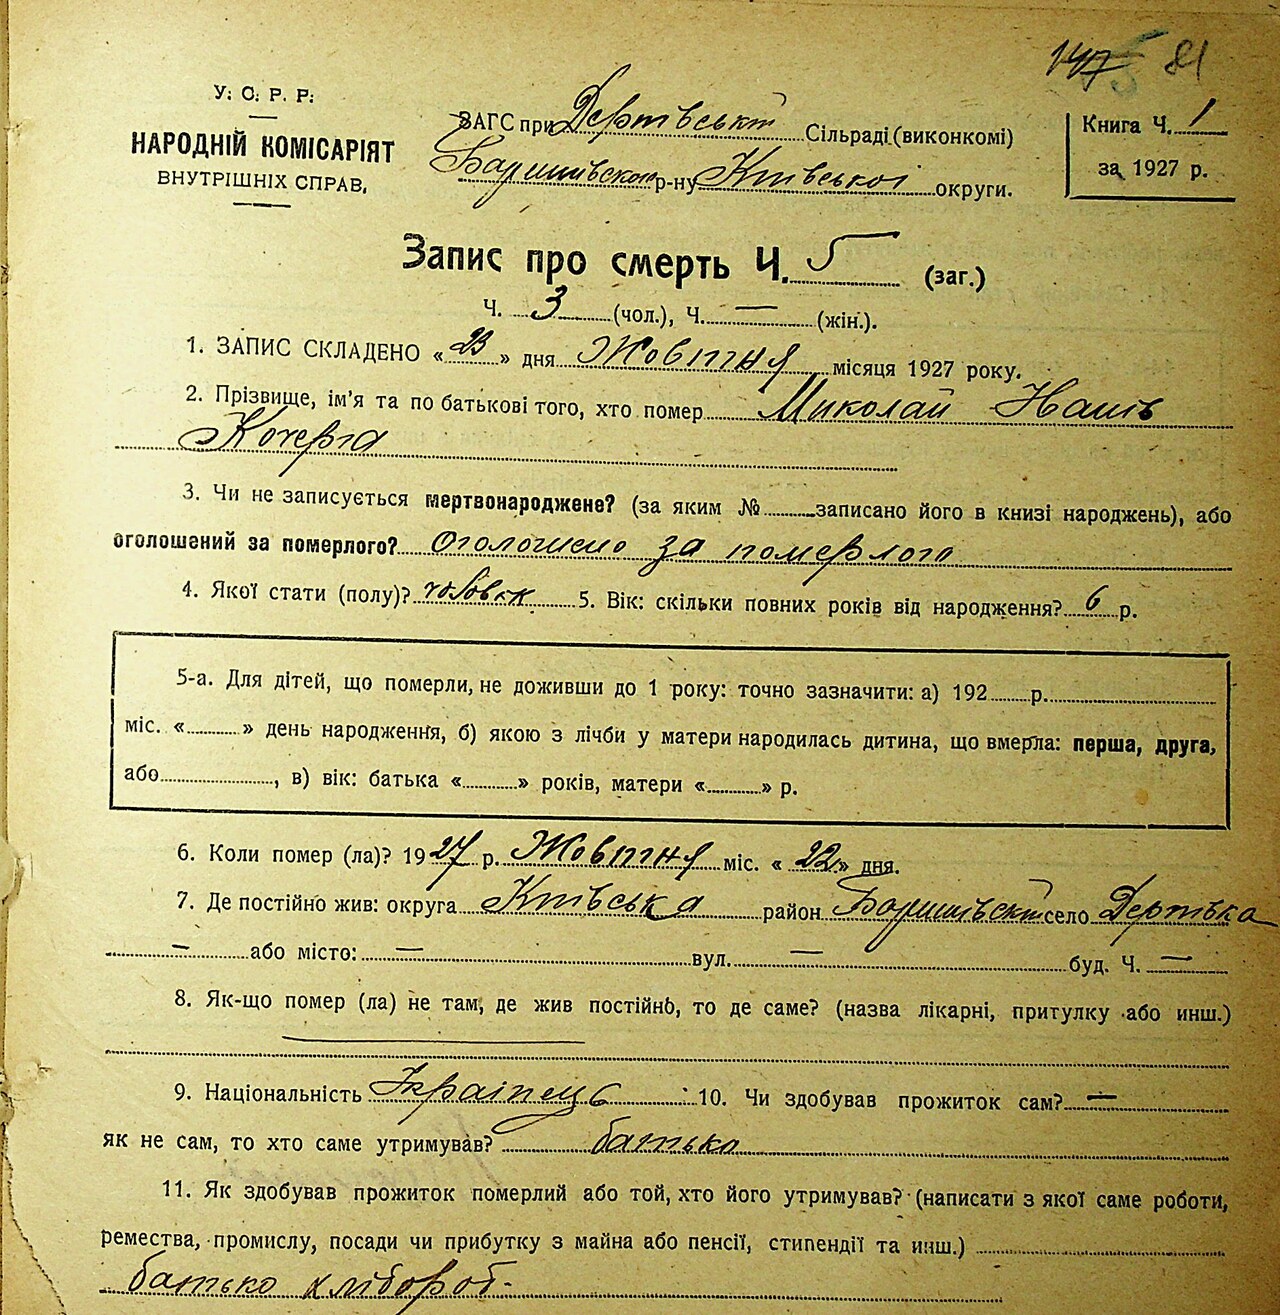 147 81
У. С. Р. Р.
НАРОДНІЙ КОМІСАРІЯТ
ВНУТРІШНІХ СПРАВ,
ЗАГС при Дертівській Сільраді (виконкомі)
Баришівського р-ну Київської округи.
Книга Ч. 1
за 1927 р.
Запис про смерть Ч. 5 (заг.)
Ч. 3 (чол.), Ч. — (жін.).
1. ЗАПИС СКЛАДЕНО «23» дня Жовтня місяця 1927 року.
2. Прізвище, ім'я та по батькові того, хто помер Миколай
Кочерга
3. Чи не записується мертвонароджене? (за яким № записано його в книзі народжень), або
оголошений за померлого? Оголошено за померлого
4. Якої стати (полу)? чоловік 5. Вік: скільки повних років від народження? 6 р.
5-а. Для дітей, що померли, не доживши до 1 року: точно зазначити: а) 192 р.
міс. « » день народження, б) якою з лічби у матери народилась дитина, що вмерла: перша, друга,
або , в) вік: батька « » років, матери « » р.
6. Коли помер (ла)? 1927 р. Жовтня міс. «22» дня.
7. Де постійно жив: округа Київська район Баришівський село Дертівка
— або місто: — вул. — буд. Ч. —
8. Як-що помер (ла) не там, де жив постійно, то де саме? (назва лікарні, притулку або инш.)
9. Національність Українець 10. Чи здобував прожиток сам? —
як не сам, то хто саме утримував? батько
11. Як здобував прожиток померлий або той, хто його утримував? (написати з якої саме роботи,
ремества, промислу, посади чи прибутку з майна або пенсії, стипендії та инш.)
батько хлібороб.